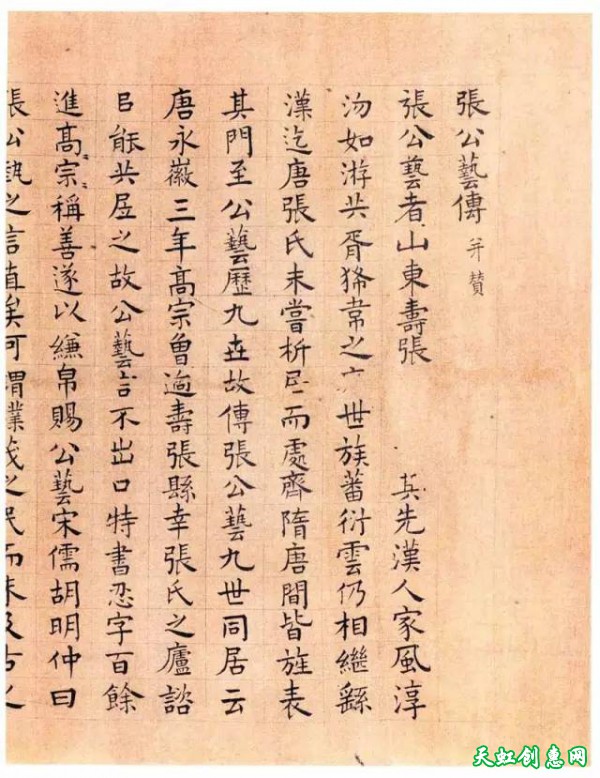 張公藝傳 并贊
張公藝者山東壽張 其先漢人家風淳
沕如游共胥狶常之 世族蕃衍雲仍相繼繇
漢迄唐張氏未嘗析居而處齊隋唐間皆旌表
其門至公藝歷九世故傳張公藝九世同居云
唐永徽三年高宗曾過壽張縣幸張氏之廬諮
㠯能共居之故公藝言不出口特書忍字百餘
進高宗稱善遂以縑帛賜公藝宋儒胡明仲曰
張公藝之言直矣可謂業茂之民而未及古之
天虹创惠网